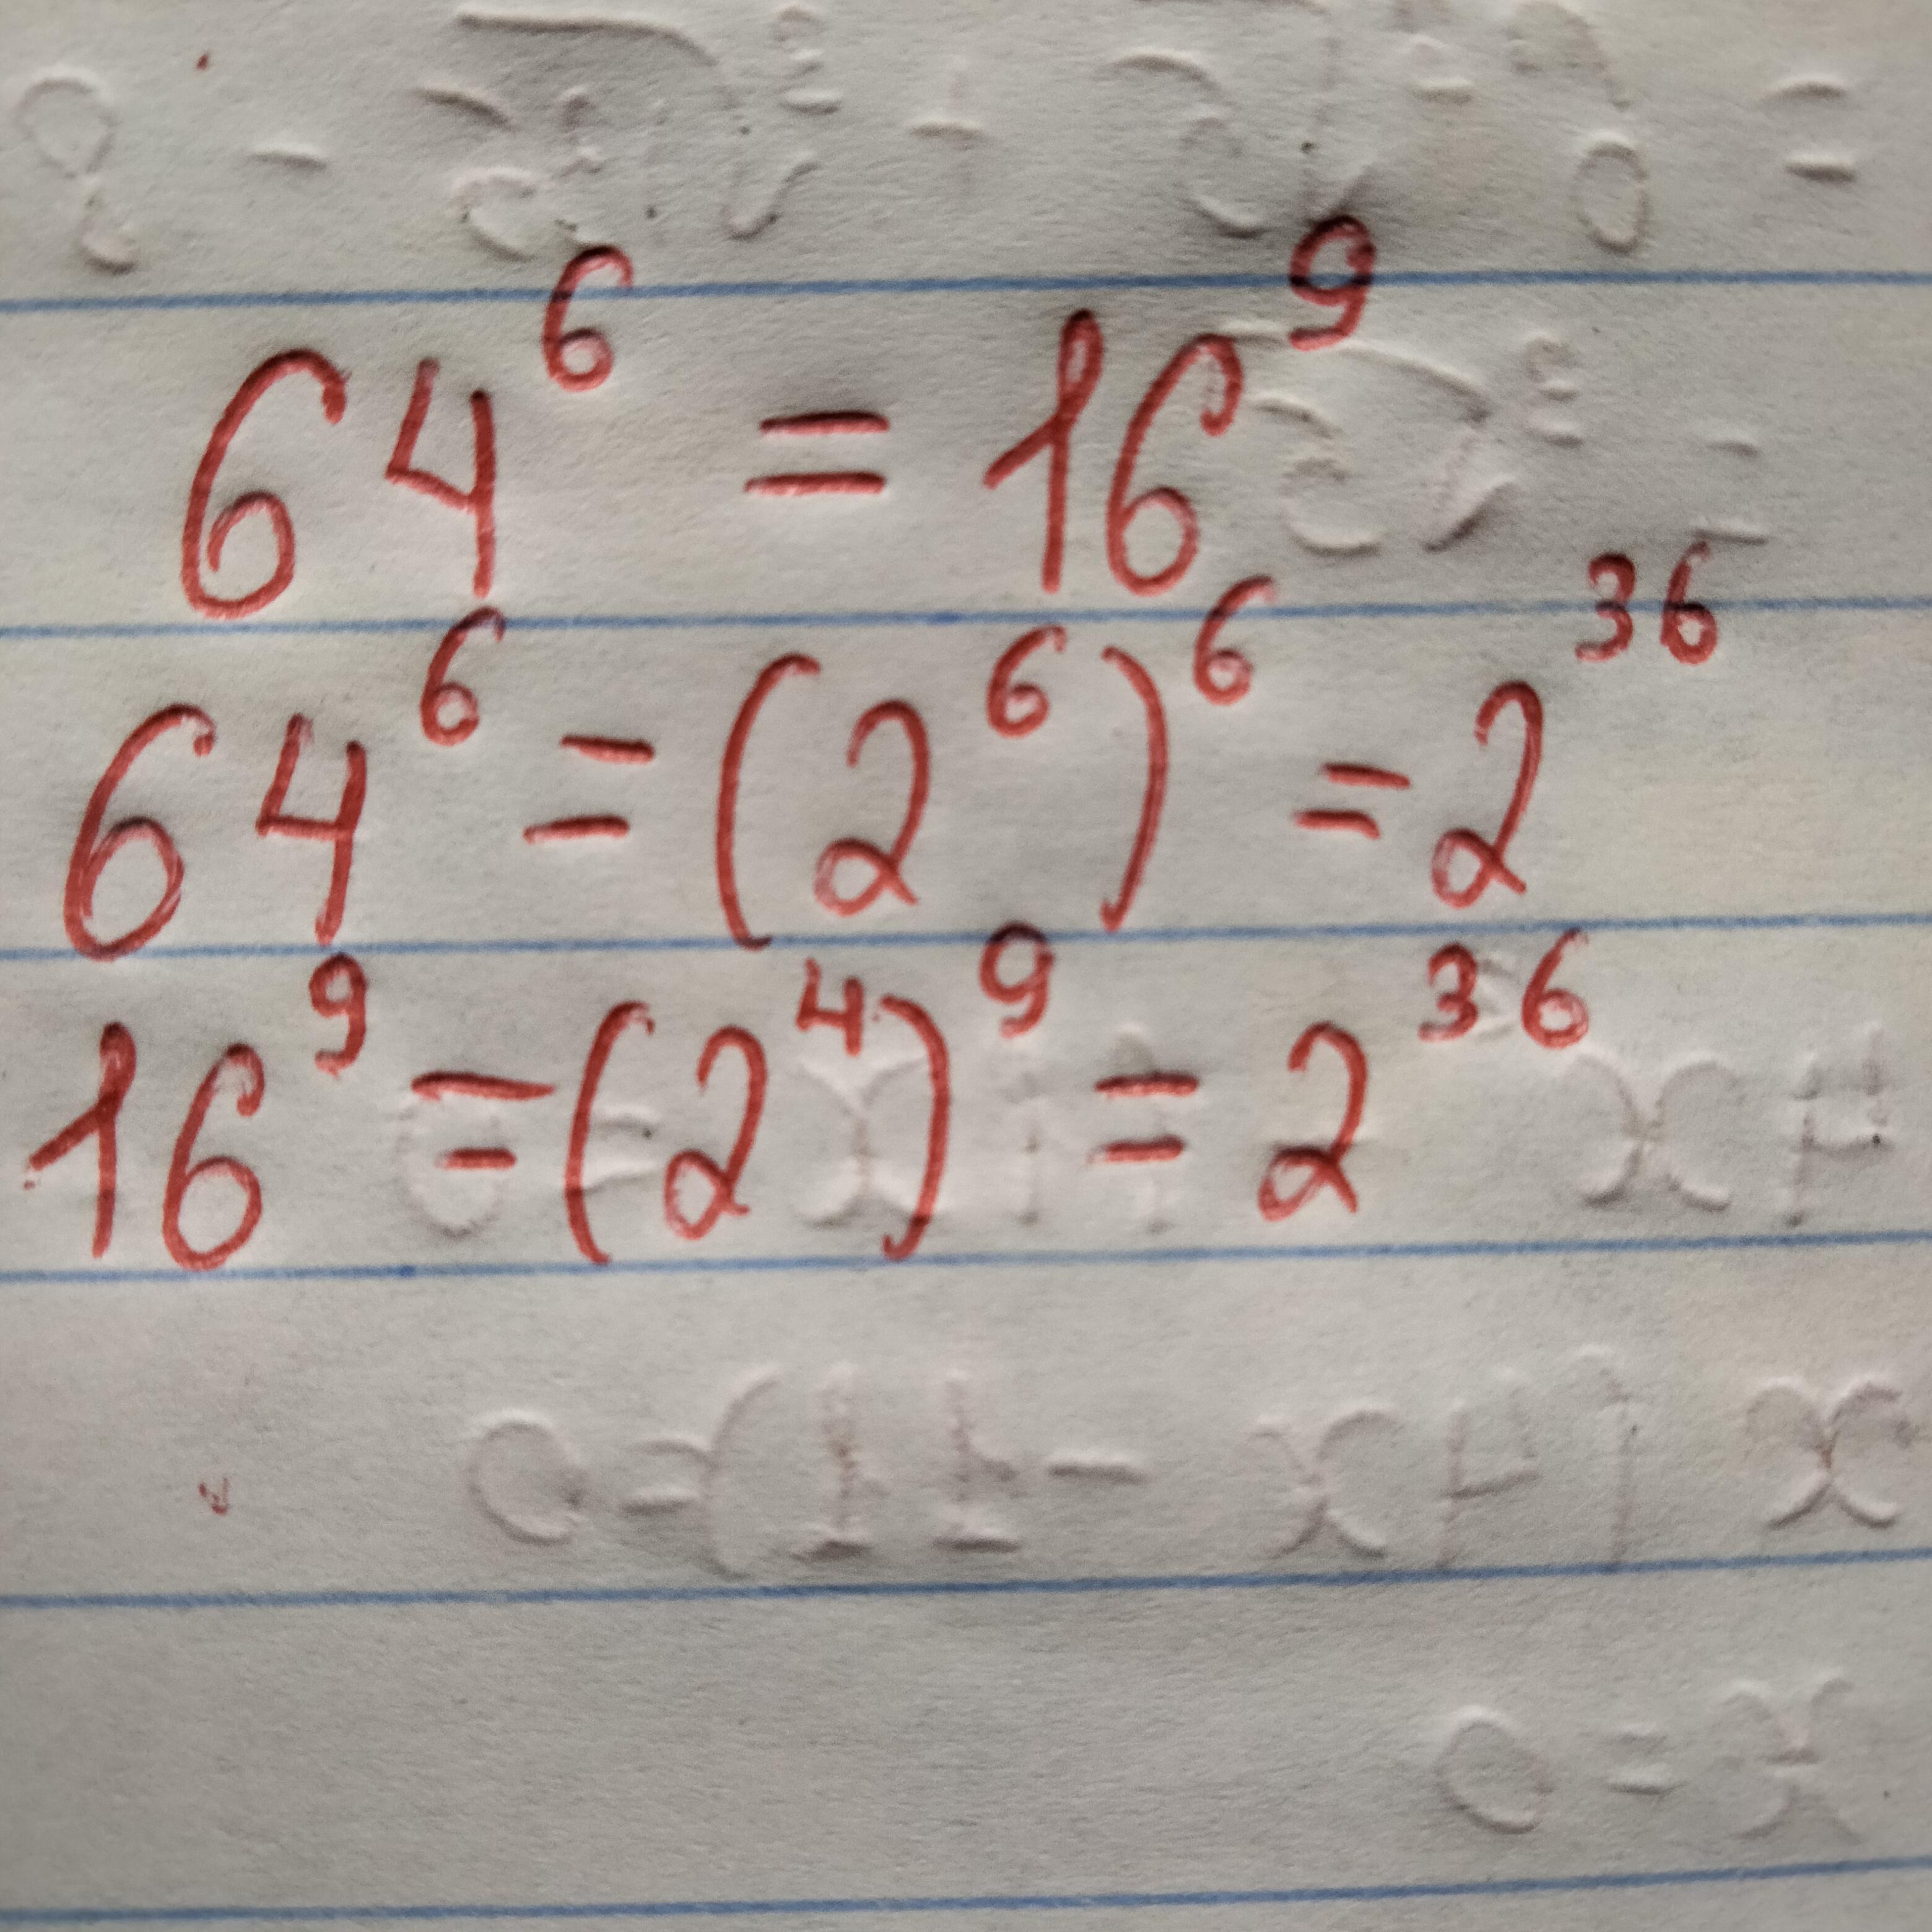 64⁶ = 16⁹
64⁶ = (2⁶)⁶ = 2³⁶
16⁹ = (2⁴)⁹ = 2³⁶